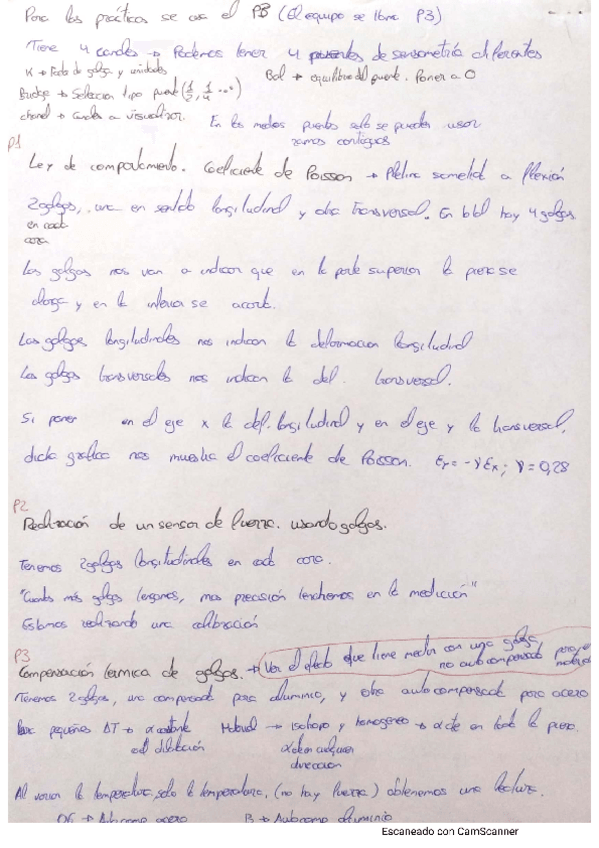 Para las prácticas se usa el P3 (El equipo se llama P3)
Tiene 4 canales → Podemos tener 4 puentes de sensometría diferentes
K → Factor de galga y unidades
Bal → equilibrio del puente. Poner a 0
Bridge → Selección tipo puente (1/2, 1/4 ...)
chanel → Canales a visualizar.
En los medios puentes solo se pueden usar
ramas contiguas
P1
Ley de comportamiento. Coeficiente de Poisson → Pletina sometida a flexión
2 galgas, una en sentido longitudinal y otra transversal. En total hay 4 galgas.
en cada
cara
Las galgas nos van a indicar que en la parte superior la pieza se
alarga y en la inferior se acorta.
Las galgas longitudinales nos indican la deformación longitudinal
Las galgas transversales nos indican la def. transversal.
Si poner en el eje x la def. longitudinal y en el eje y la transversal,
dicha gráfica nos muestra el coeficiente de Poisson. Ey = -γEx; γ = 0,28
P2
Realización de un sensor de fuerza. usando galgas.
Tenemos 2 galgas longitudinales en cada cara.
"Cuantas más galgas tengamos, mas precisión tendremos en la medición"
Estamos realizando una calibración
P3
Compensación térmica de galgas. → Ver el efecto que tiene medir con una galga
no autocompensada para el
material
Tenemos 2 galgas, una compensada para aluminio, y otra autocompensada para acero
Para pequeños ΔT → α constante
Material → isótropo y homogéneo → α cte en toda la pieza.
coef dilatación
α cte en cualquier
dirección
Al variar la temperatura, solo la temperatura, (no hay fuerza) obtenemos una lectura.
→ Autocomp acero
B → Autocomp aluminio
Escaneado con CamScanner